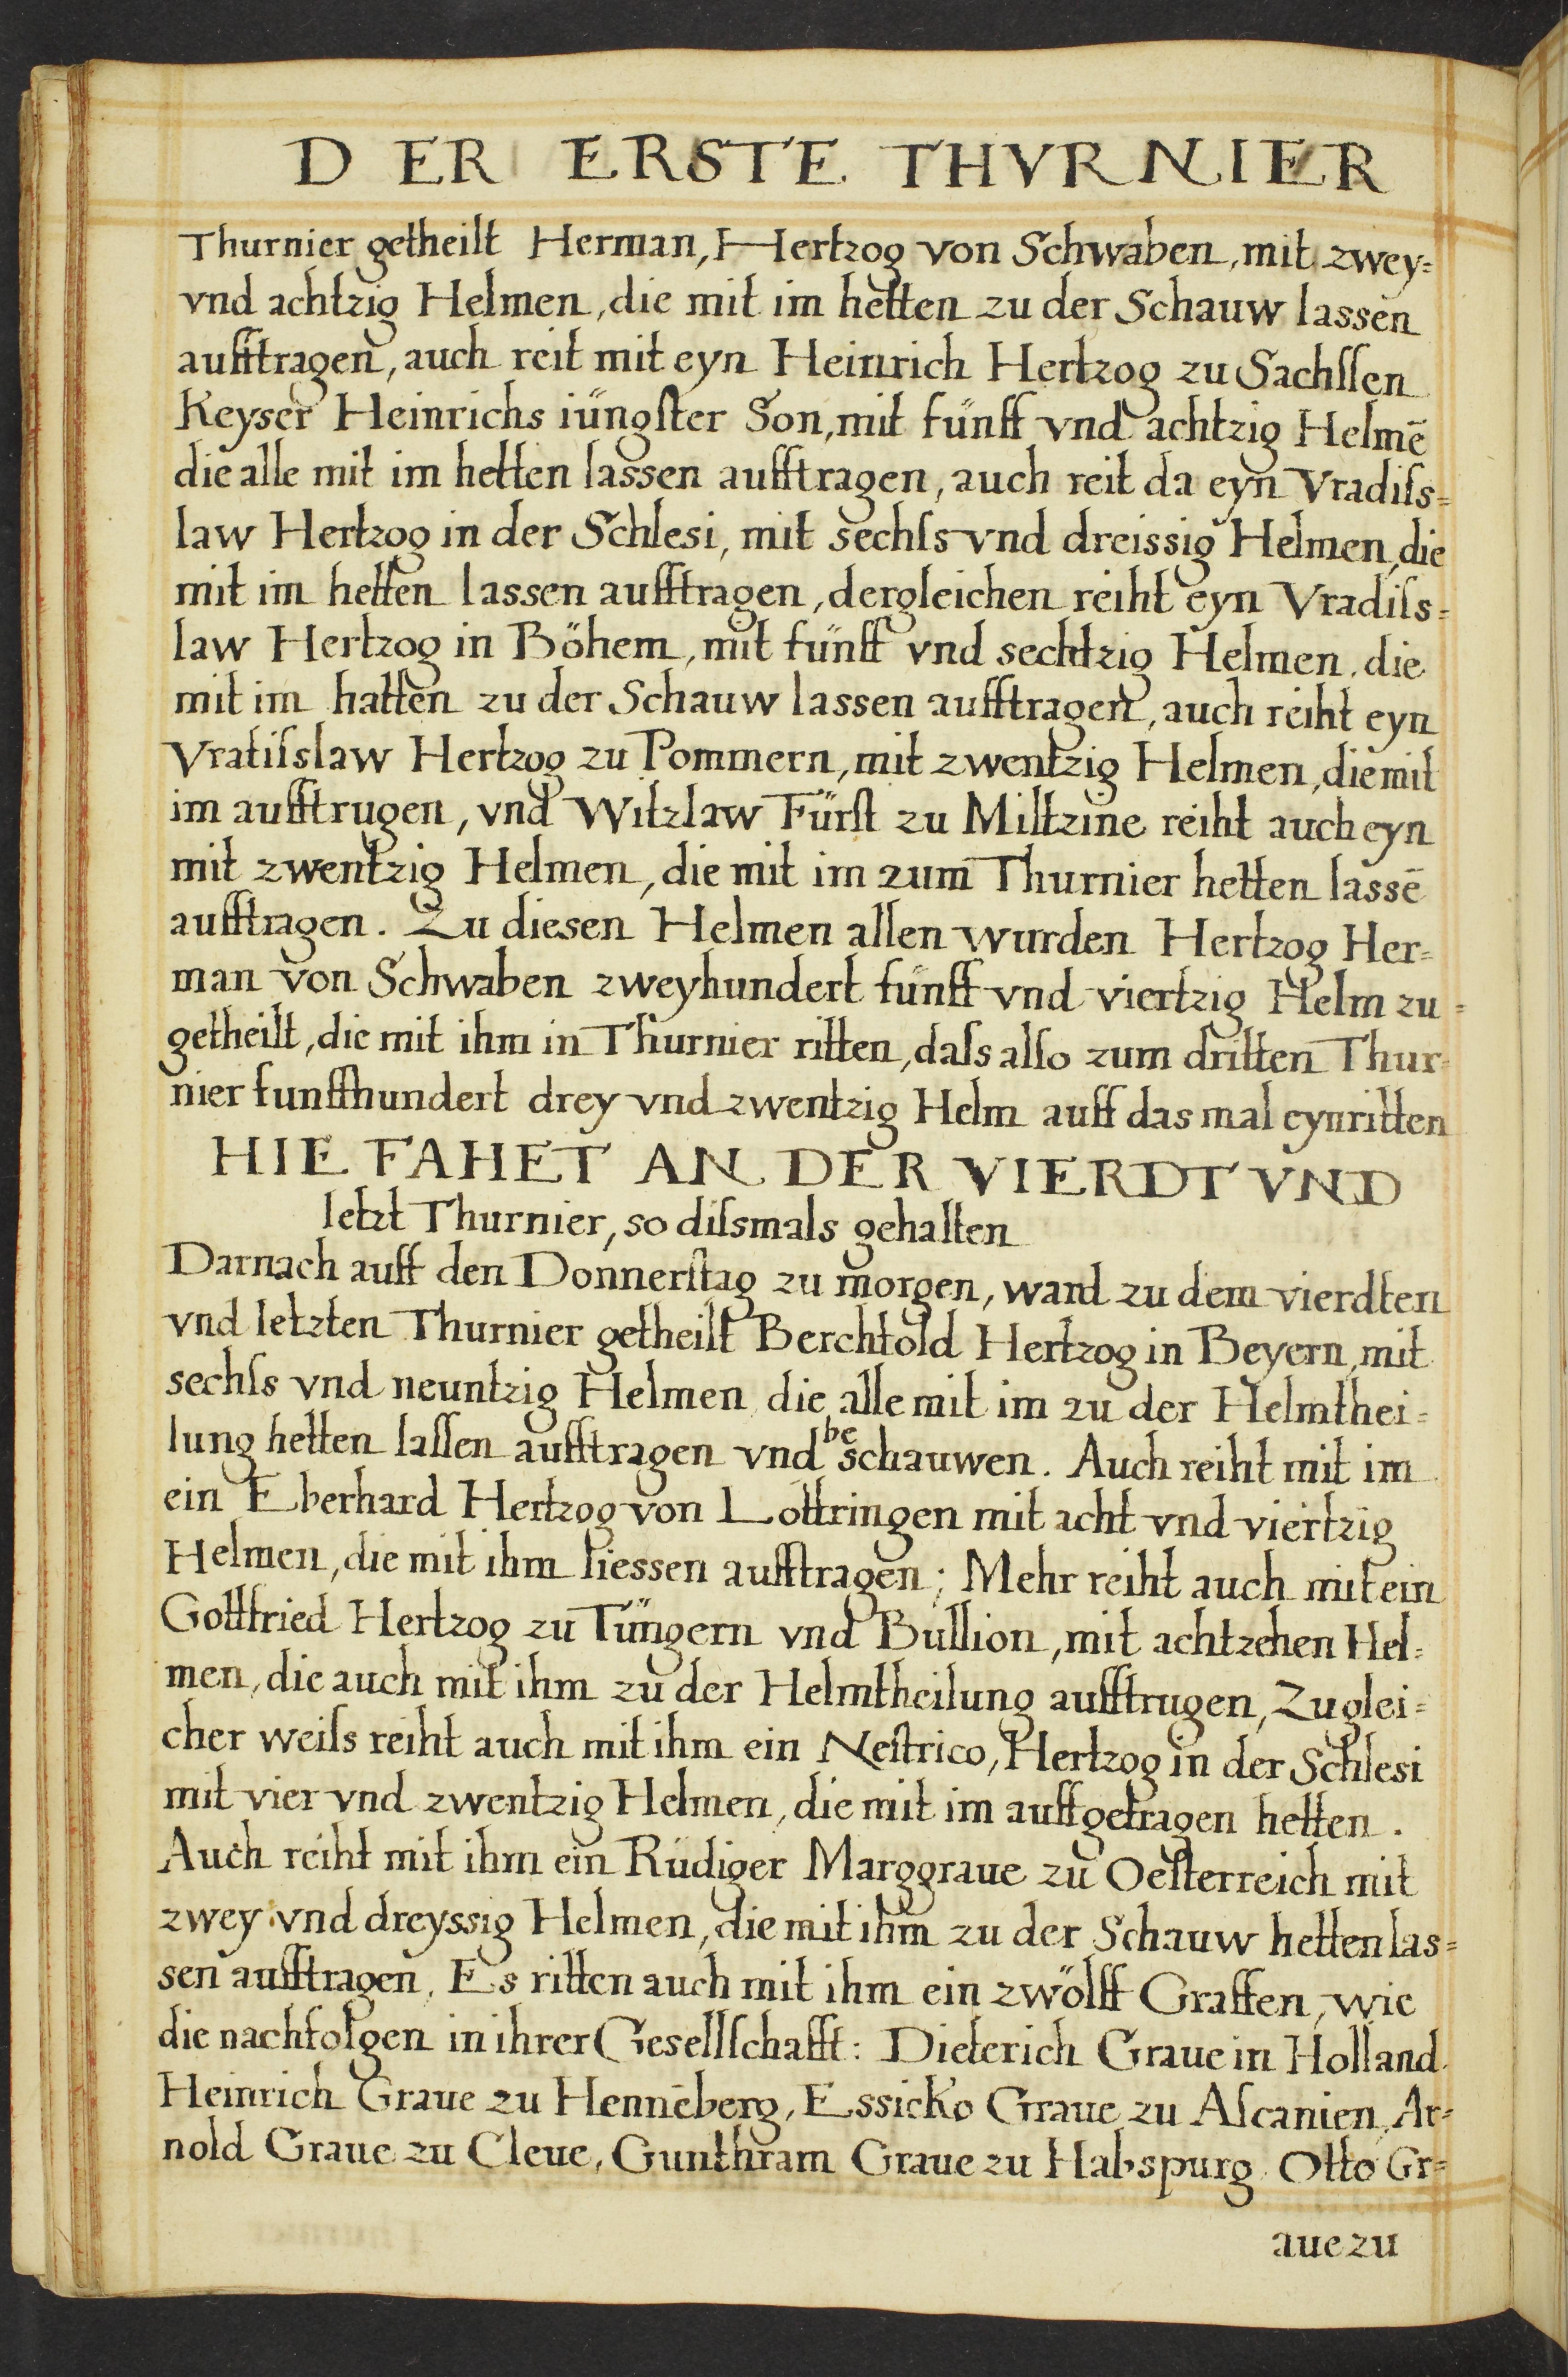 DER ERSTE THVRNIER
Thurnier getheilt Herman, Hertzog von Schwaben, mit zwey=
vnd achtzig Helmen, die mit im hetten zu der Schauw lassen
aufftragen, auch reit mit eyn Heinrich Hertzog zu Sachſſen
Keyser Heinrichs iüngſter Son, mit fünff vnd achtzig Helmē
die alle mit im hetten lassen aufftragen, auch reit da eyn Vradiſs=
law Hertzog in der Schlesi, mit sechſs vnd dreissig Helmen, die
mit im hetten lassen aufftragen, dergleichen reiht eyn Vradiſs=
law Hertzog in Böhem, mit fünff vnd sechtzig Helmen, die
mit im hatten zu der Schauw lassen aufftragen, auch reiht eyn
Vratiſslaw Hertzog zu Pommern, mit zwentzig Helmen, die mit
im aufftrugen, vnd Witzlaw Fürſt zu Miltzine reiht auch eyn
mit zwentzig Helmen, die mit im zum Thurnier hetten lassē
aufftragen. Zu diesen Helmen allen wurden Hertzog Her=
man von Schwaben zweyhundert fünff vnd viertzig Helm zu=
getheilt, die mit ihm in Thurnier ritten, daſs alſo zum dritten Thur=
nier funffhundert drey vnd zwentzig Helm auff das mal eynritten
HIE FAHET AN DER VIERDT VND
letzt Thurnier, so diſsmals gehalten
Darnach auff den Donnerſtag zu morgen, ward zu dem vierdten
vnd letzten Thurnier getheilt Berchtold Hertzog in Beyern, mit
sechſs vnd neuntzig Helmen die alle mit im zu der Helmthei=
lung hetten laſſen aufftragen vnd beschauwen. Auch reiht mit im
ein Eberhard Hertzog von Lottringen mit acht vnd viertzig
Helmen, die mit ihm liessen aufftragen; Mehr reiht auch mit ein
Gottfried Hertzog zu Tüngern vnd Bullion, mit achtzehen Hel=
men, die auch mit ihm zu der Helmtheilung aufftrugen, Zu glei=
cher weiſs reiht auch mit ihm ein Neſtrico, Hertzog in der Schlesi
mit vier vnd zwentzig Helmen, die mit im auffgetragen hetten.
Auch reiht mit ihm ein Rüdiger Marggraue zu Oeſterreich mit
zwey vnd dreyssig Helmen, die mit ihm zu der Schauw hetten las=
sen aufftragen, Es ritten auch mit ihm ein zwölff Graffen, wie
die nachfolgen in ihrer Gesellſchafft: Dieterich Graue in Holland.
Heinrich Graue zu Hennēberg, Essicko Graue zu Aſcanien, Ar=
nold Graue zu Cleue, Gunthram Graue zu Habspurg Otto Gr=
aue zu